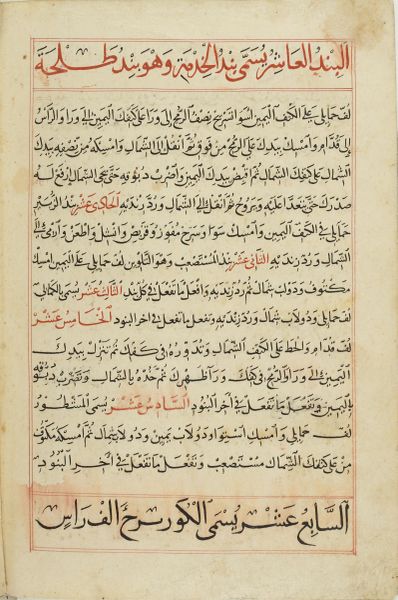 البند العاشر يسمى بند الخدمة وهو بند طلحة
لف حمايلي على الكتف اليمين اسوا تسريح نصف الرمح الى ورا على كتفك اليمين الى ورا والراس
الى قدام وامسك بيدك على الرمح من فوق ثم انفل الى الشمال وامسكه من نصفه بيدك
الشمال على كتفك الشمال ثم اقبض بيدك اليمين واضرب دبوقه حتى يجي الشمال ارفع له
صدرك حتى يتعدا عليه ويروح ثم انفل الى الشمال ورد زنديه الحادي عشر بند
حمايلي في الكتف اليمين وامسك سوا وسرح مفوز وقربص وانشل واطعن وارمي الى
الشمال ورد زنديه الثاني عشر بند المستصعب وهو التلوين لف حمايلي على اليمين امسك
مكتوف ودولاب شمال ورد زنديه وافعل ما تفعل في كل بند الثالث عشر يسمى بالكمالي
لف حمايلي ودولاب شمال ورد زنديه وتفعل ما تفعل في اخر البنود الخامس عشر
لف قدام والحط على الكتف الشمال وتدوره في كتفك ثم تنزل بيدك
اليمين الى ورا الرمح في كتفك ورا ظهرك ثم خذه بالشمال وتضرب دبوقه
باليمين وتفعل ما تفعل في اخر البنود السادس عشر يسمى المشطور
لف حمايلي وامسك استوا ودولاب يمين ودولاب شمال ثم امسكه مكتوف
من على كتفك الشمال مستصعب وتفعل ما تفعل في اخر البنود
السابع عشر يسمى الكور سرح الف راس